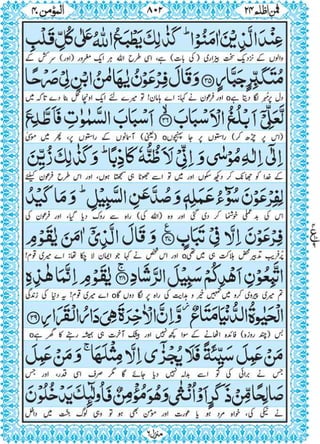 فمن اظلم ٢٤ ٨٠٢ المؤمن ٤٠
عِنْدَ الَّذِيْنَ اٰمَنُوْا ؕ كَذٰلِكَ يَطْبَعُ اللّٰهُ عَلٰى كُلِّ قَلْبِ
والوں کے نزدیک سخت بیزاری (کی بات) ہے، اسی طرح اللہ ہر ایک مغرور (اور) سرکش کے
مُتَكَبِّرٍ جَبَّارٍ ۝۳۵ وَ قَالَ فِرْعَوْنُ يٰهَامٰنُ ابْنِ لِيْ صَرْحًا
دل پر مہر لگا دیتا ہے۝ اور فرعون نے کہا: اے ہامان! تو میرے لئے ایک اونچا محل بنا دے تاکہ میں
لَّعَلِّيْۤ اَبْلُغُ الْاَسْبَابَ ۝۳۶ اَسْبَابَ السَّمٰوٰتِ فَاَطَّلِعَ
(اس پر چڑھ کر) راستوں پر جا پہنچوں۝ (یعنی) آسمانوں کے راستوں پر، پھر میں موسٰی
اِلٰۤى اِلٰهِ مُوْسٰى وَ اِنِّيْ لَاَظُنُّهٗ كَاذِبًا ؕ وَ كَذٰلِكَ زُيِّنَ
کے خدا کو جھانک کر دیکھ سکوں اور میں تو اسے جھوٹا ہی سمجھتا ہوں، اور اس طرح فرعون کیلئے
لِفِرْعَوْنَ سُوْٓءُ عَمَلِهٖ وَ صُدَّ عَنِ السَّبِيْلِ ؕ وَ مَا كَيْدُ
اس کی بد عملی خوشنما کر دی گئی اور وہ (اللہ کی) راہ سے روک دیا گیا، اور فرعون کی
فِرْعَوْنَ اِلَّا فِيْ تَبَابٍ ۝۳۷ وَ قَالَ الَّذِيْۤ اٰمَنَ يٰقَوْمِ
پُرفریب تدبیر محض ہلاکت ہی میں تھی۝ اور اس شخص نے کہا جو ایمان لا چکا تھا: اے میری قوم!
اتَّبِعُوْنِ اَهْدِكُمْ سَبِيْلَ الرَّشَادِ ۝۳۸ يٰقَوْمِ اِنَّمَا هٰذِهِ
تم میری پیروی کرو میں تمہیں خیر و ہدایت کی راہ پر لگا دوں گا۝ اے میری قوم! یہ دنیا کی زندگی
الْحَيٰوةُ الدُّنْيَا مَتَاعٌ ؗ وَّ اِنَّ الْاٰخِرَةَ هِيَ دَارُ الْقَرَارِ ۝۳۹
بس (چند روزہ) فائدہ اٹھانے کے سوا کچھ نہیں اور بیشک آخرت ہی ہمیشہ رہنے کا گھر ہے۝
مَنْ عَمِلَ سَيِّئَةً فَلَا يُجْزٰۤى اِلَّا مِثْلَهَا ۚ وَ مَنْ عَمِلَ
جس نے برائی کی تو اسے بدلہ نہیں دیا جائے گا مگر صرف اسی قدر، اور جس
صَالِحًا مِّنْ ذَكَرٍ اَوْ اُنْثٰى وَ هُوَ مُؤْمِنٌ فَاُولٰٓئِكَ يَدْخُلُوْنَ
نے نیکی کی، خواہ مرد ہو یا عورت اور مومن بھی ہو تو وہی لوگ جنّت میں داخل
منزل ٦